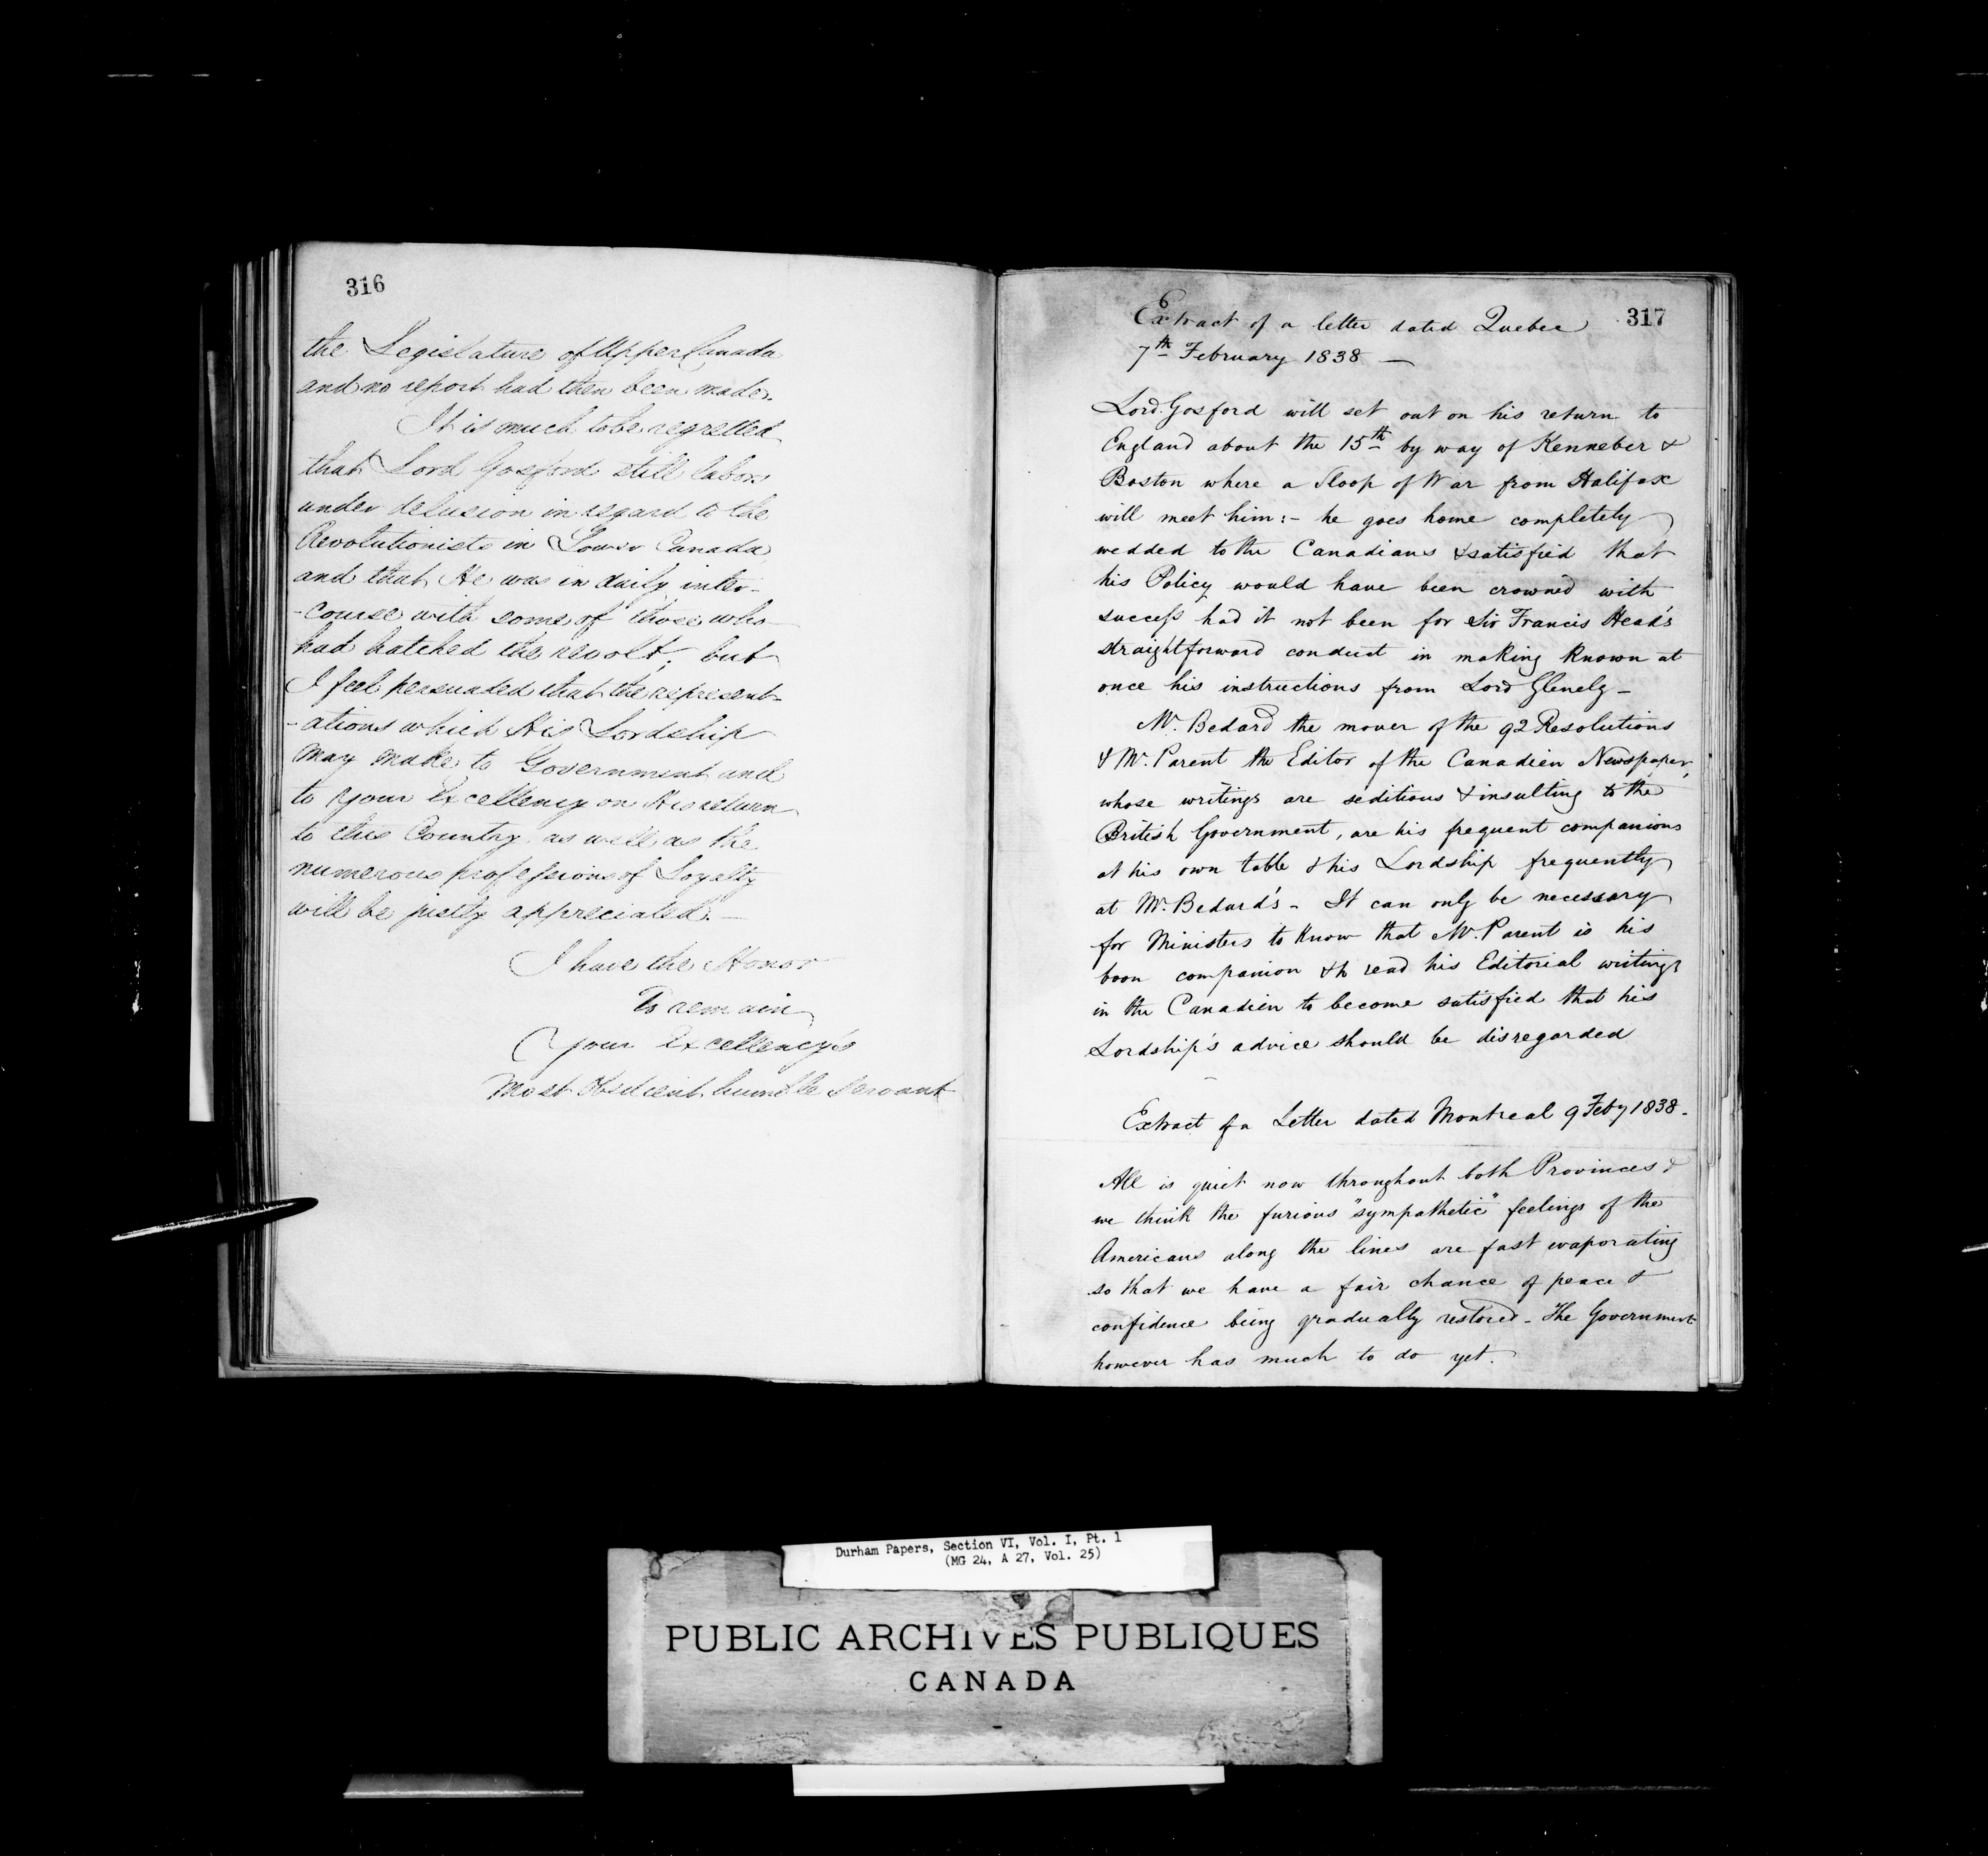 316
the Legislature of Upper Canada
and no report had then been made.
It is much to be regretted
that Lord Gosford still labors
under delusion in regard to the
Revolutionists in Lower Canada,
and that He was in daily inter-
-course with some of those who
had hatched the revolt, but
I feel persuaded that the represent-
-ations which His Lordship
may make to Government and
to Your Excellency on His return
to this Country, as well as the
numerous professions of Loyalty
will be justly appreciated. —
I have the Honor
To remain
Your Excellency's
Most Obedient humble Servant
6
317
Extract of a letter dated Quebec
7th February 1838 —
Lord Gosford will set out on his return to
England about the 15th by way of Kenneber &
Boston where a Sloop of War from Halifax
will meet him:- he goes home completely
wedded to the Canadians & satisfied that
his Policy would have been crowned with
success had it not been for Sir Francis Head's
straightforward conduct in making known at
once his instructions from Lord Glenelg –
Mr. Bedard the mover of the 92 Resolutions
& Mr. Parent the Editor of the Canadien Newspaper,
whose writings are seditious & insulting to the
British Government, are his frequent companions
at his own table & his Lordship frequently
at Mr. Bedard's – It can only be necessary
for Ministers to know that Mr. Parent is his
boon companion & to read his Editorial writings
in the Canadien to become satisfied that his
Lordship's advice should be disregarded
Extract of a Letter dated Montreal 9 Feby 1838 –
All is quiet now throughout both Provinces &
we think the furious "sympathetic" feelings of the
Americans along the lines are fast evaporating
so that we have a fair chance of peace &
confidence being gradually restored – The Government
however has much to do yet.
Durham Papers, Section VI, Vol. I, Pt. 1
(MG 24, A 27, Vol. 25)
PUBLIC ARCHIVES PUBLIQUES
CANADA